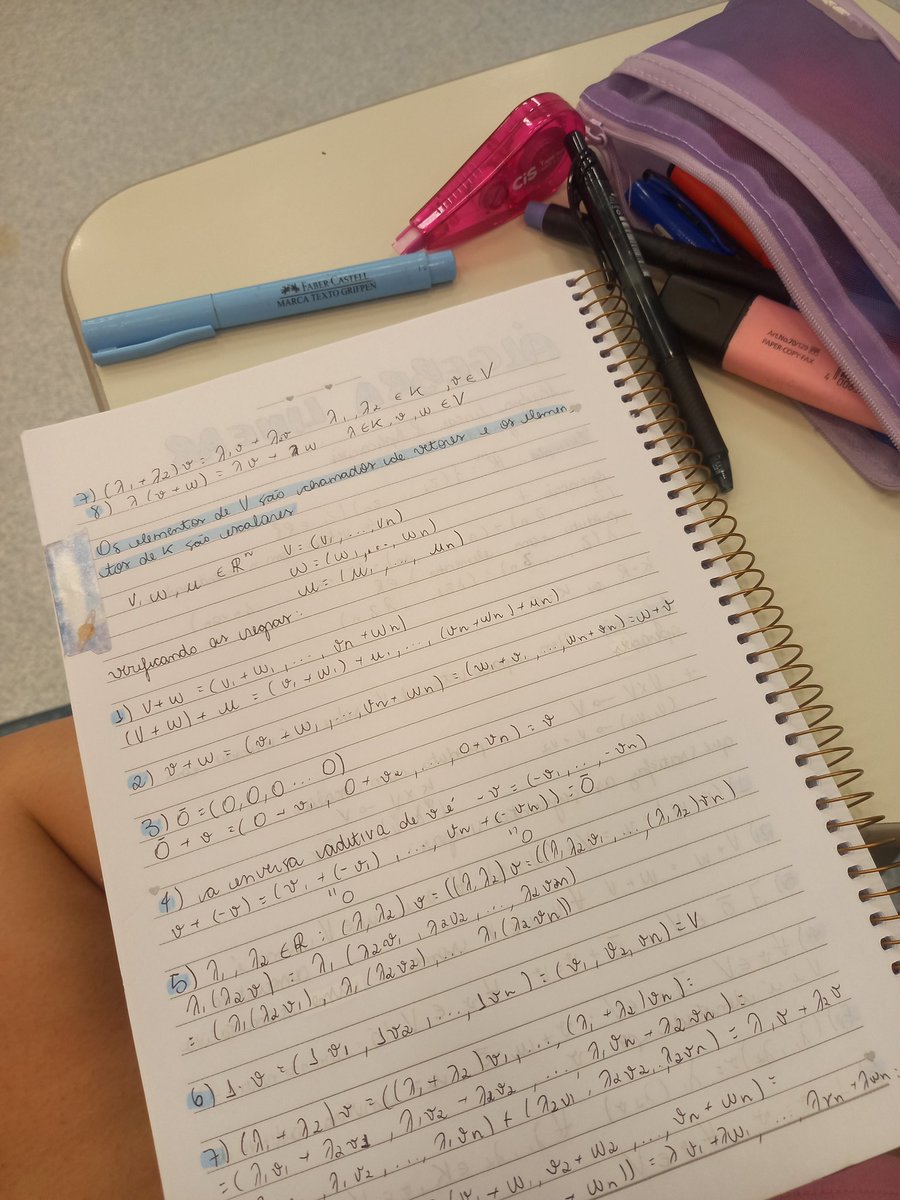 CiS
FABER CASTELL
MARCA TEXTO GRIFPEN
Art.No.70/129
PAPER·COPY·FAX
7) (λ₁ + λ₂) v = λ₁v + λ₂v λ₁, λ₂ ∈ K, v ∈ V
8) λ (v + w) = λv + λw λ ∈ K, v, w ∈ V
Os elementos de V são chamados de vetores e os elemen-
tos de K são escalares
v, w, u ∈ ℝⁿ v = (v₁, ..., vn)
w = (w₁, ..., wn)
u = (u₁, ..., un)
verificando as regras:
1) V + w = (v₁ + w₁, ..., vn + wn)
(V + w) + u = (v₁ + w₁) + u₁, ..., (vn + wn) + un)
2) v + w = (v₁ + w₁, ..., vn + wn) = (w₁ + v₁, ..., wn + vn) = w + v
3) Ō = (0, 0, 0 ... 0)
Ō + v = (0 + v₁, 0 + v₂, ..., 0 + vn) = v
4) a inversa aditiva de v é -v = (-v₁, ..., -vn)
v + (-v) = (v₁ + (-v₁), ..., vn + (-vn)) = Ō
"0 "0
5) λ₁, λ₂ ∈ ℝ : (λ₁λ₂) v = ((λ₁λ₂) v = ((λ₁λ₂v₁, ..., (λ₁λ₂)vn)
λ₁(λ₂v) = λ₁(λ₂v₁, λ₂v₂, ..., λ₂vn)
= (λ₁(λ₂v₁), λ₁(λ₂v₂), ... λ₁(λ₂vn))
6) 1. v = (1v₁, 1v₂, ..., 1vn) = (v₁, v₂, vn) = V
7) (λ₁ + λ₂) v = ((λ₁ + λ₂) v₁, ..., (λ₁ + λ₂)vn) =
= (λ₁v₁ + λ₂v₁, λ₁v₂ + λ₂v₂, ..., λ₁vn + λ₂vn) =
λ₁v₂, ..., λ₁vn) + (λ₂v₁, λ₂v₂, ..., λ₂vn) = λ₁v + λ₂v
v₁ + w₁, v₂ + w₂, ..., vn + wn) =
wn)) = λv₁ + λw₁, ..., λvn + λwn =